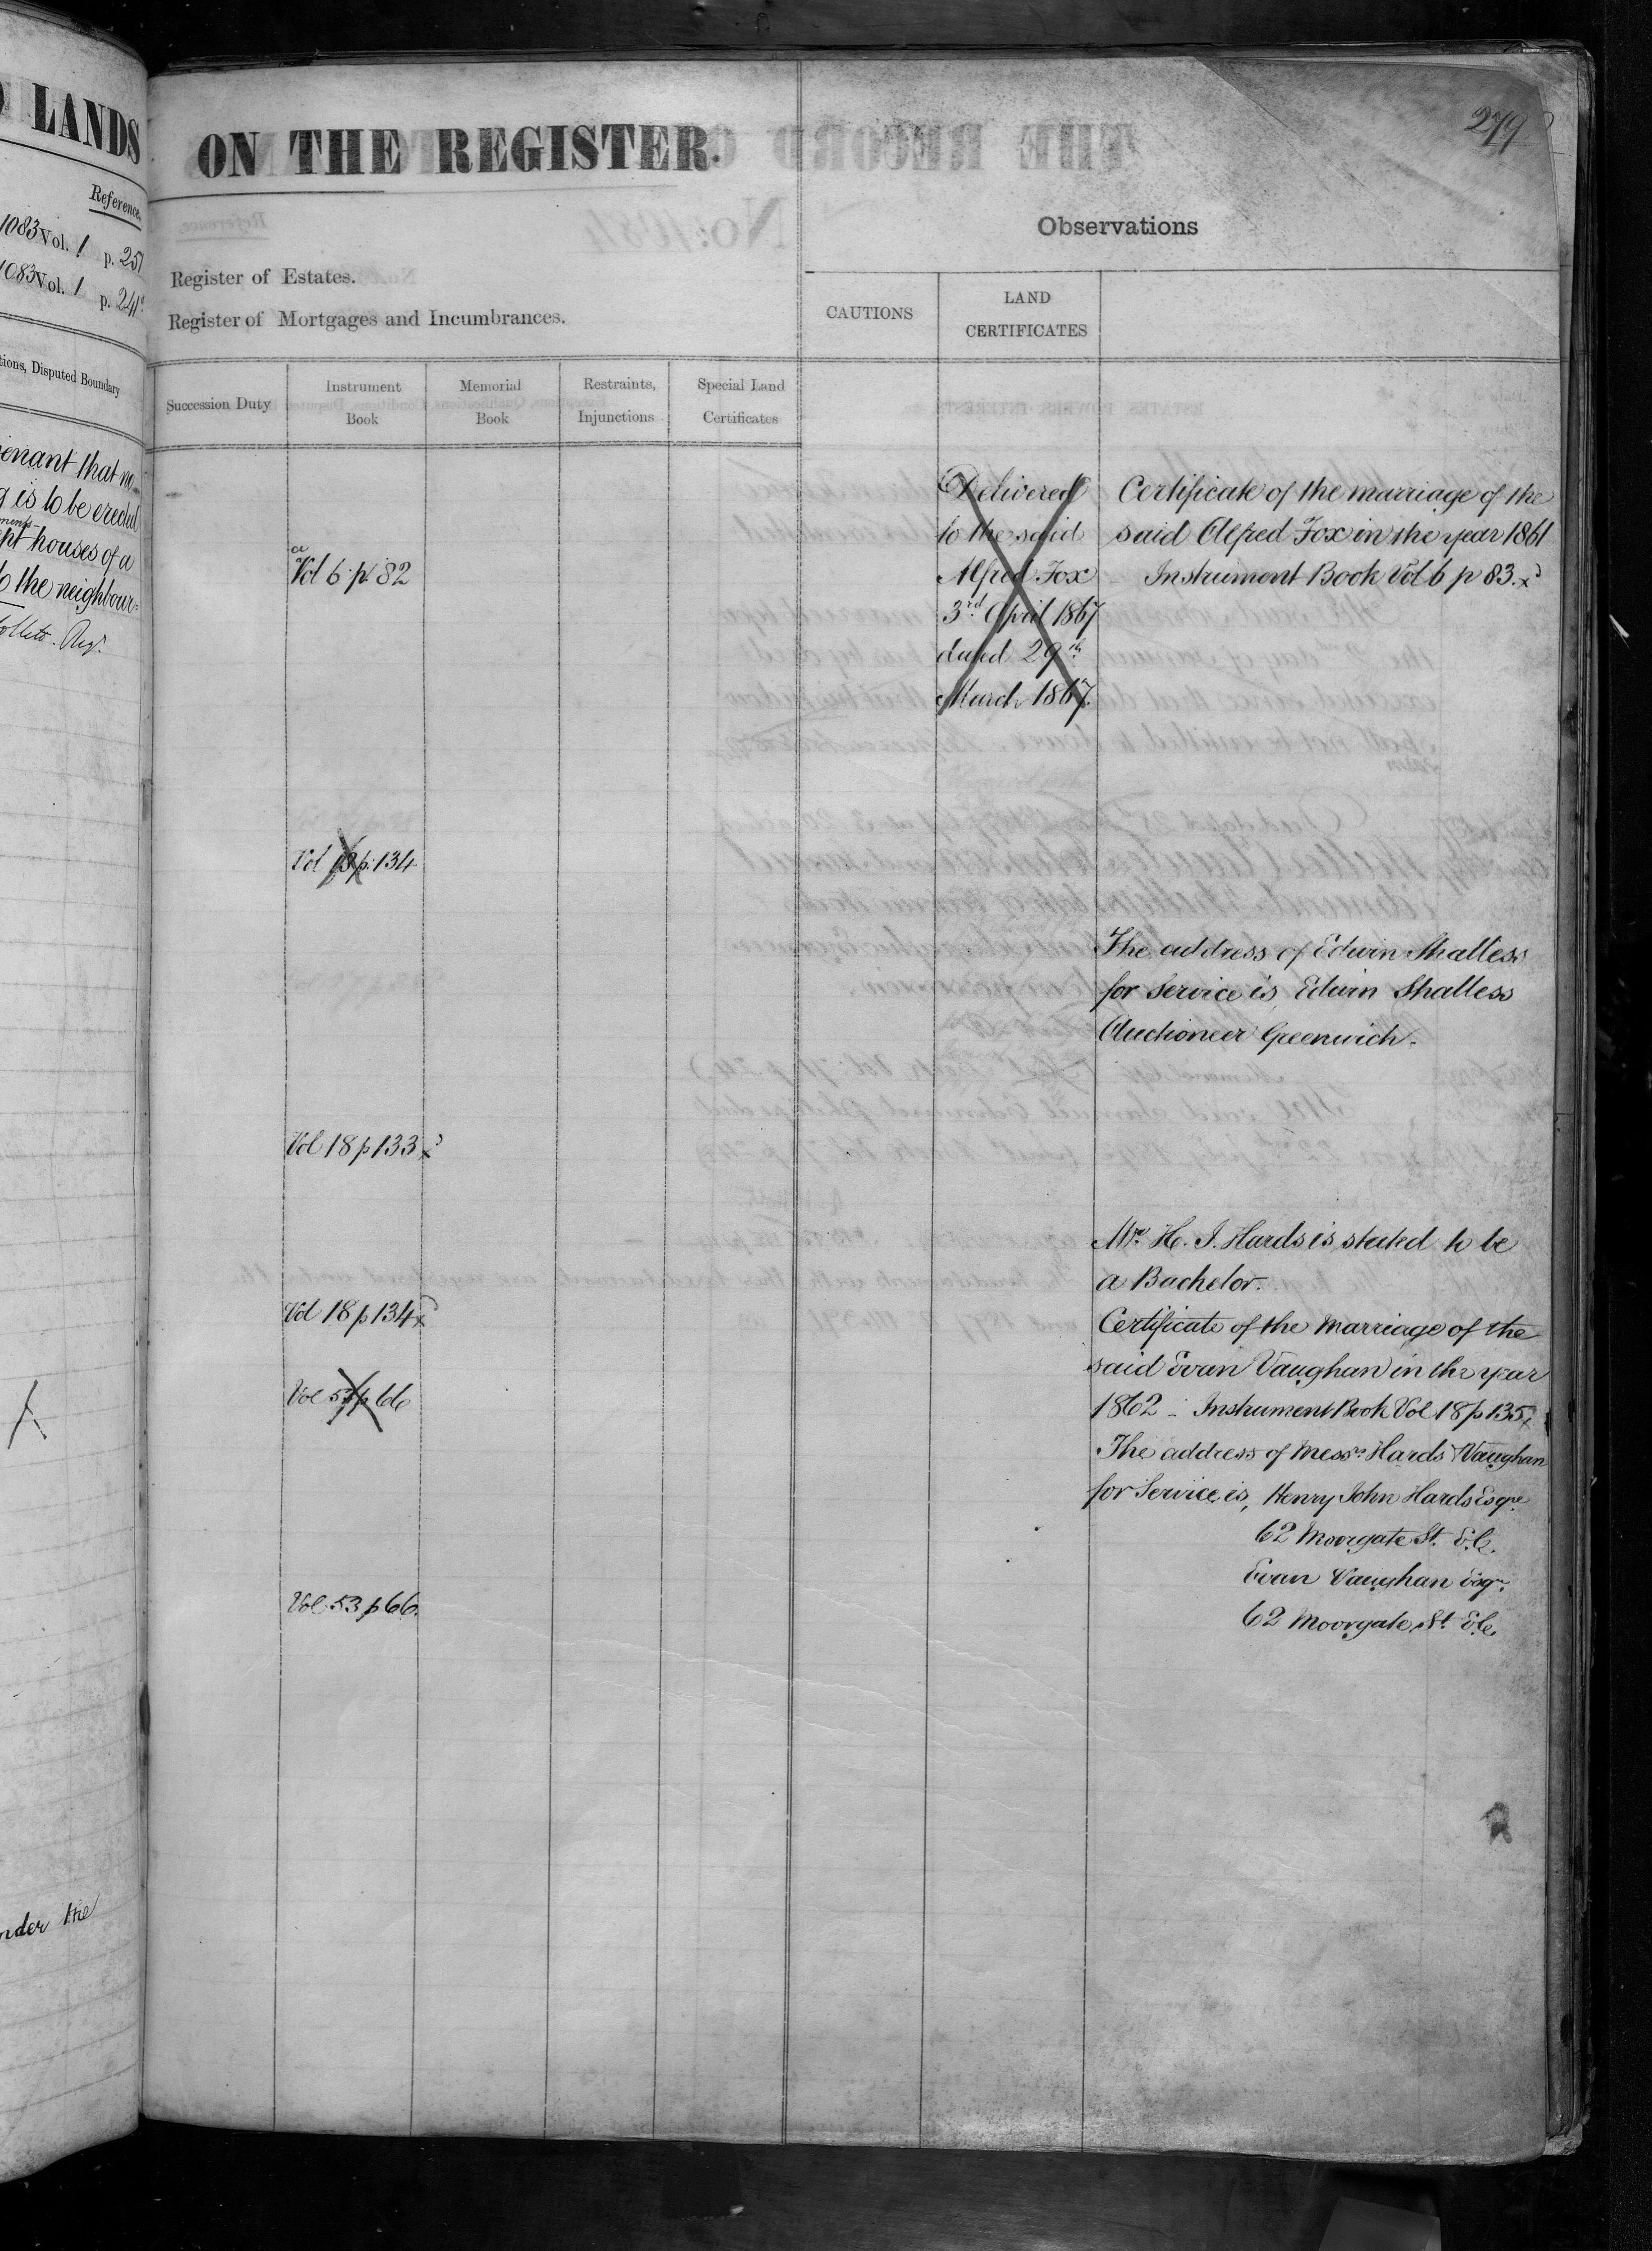 LANDS
Reference.
1083 Vol. 1 p. 251
1083 Vol. 1 p. 241
tions, Disputed Boundary
enant that no
g is to be erected
ments
ept houses of a
to the neighbour=
Regr.
nder the
279
ON THE REGISTER.
Observations
Register of Estates.
Register of Mortgages and Incumbrances.
CAUTIONS
LAND CERTIFICATES
Succession Duty
Instrument Book
Memorial Book
Restraints, Injunctions
Special Land Certificates
a
Vol 6 p 82
Vol 18 p 134
Vol 18 p 133 x
Vol 18 p 134 x
Vol 53 p 66
Vol 53 p 66
Delivered
to the said
Alfred Fox
3rd April 1867
dated 29th
March 1867.
Certificate of the marriage of the
said Alfred Fox in the year 1861
Instrument Book Vol 6 p 83. x
The address of Edwin Shalless
for service is, Edwin Shalless
Auctioneer Greenwich.
Mr. H. J. Hards is stated to be
a Bachelor.
Certificate of the marriage of the
said Evan Vaughan in the year
1862 - Instrument Book Vol 18 p 135 x
The address of Messrs Hards & Vaughan
for Service is, Henry John Hards Esqre
62 Moorgate St. E.C.
Evan Vaughan Esqr.
62 Moorgate St E.C.